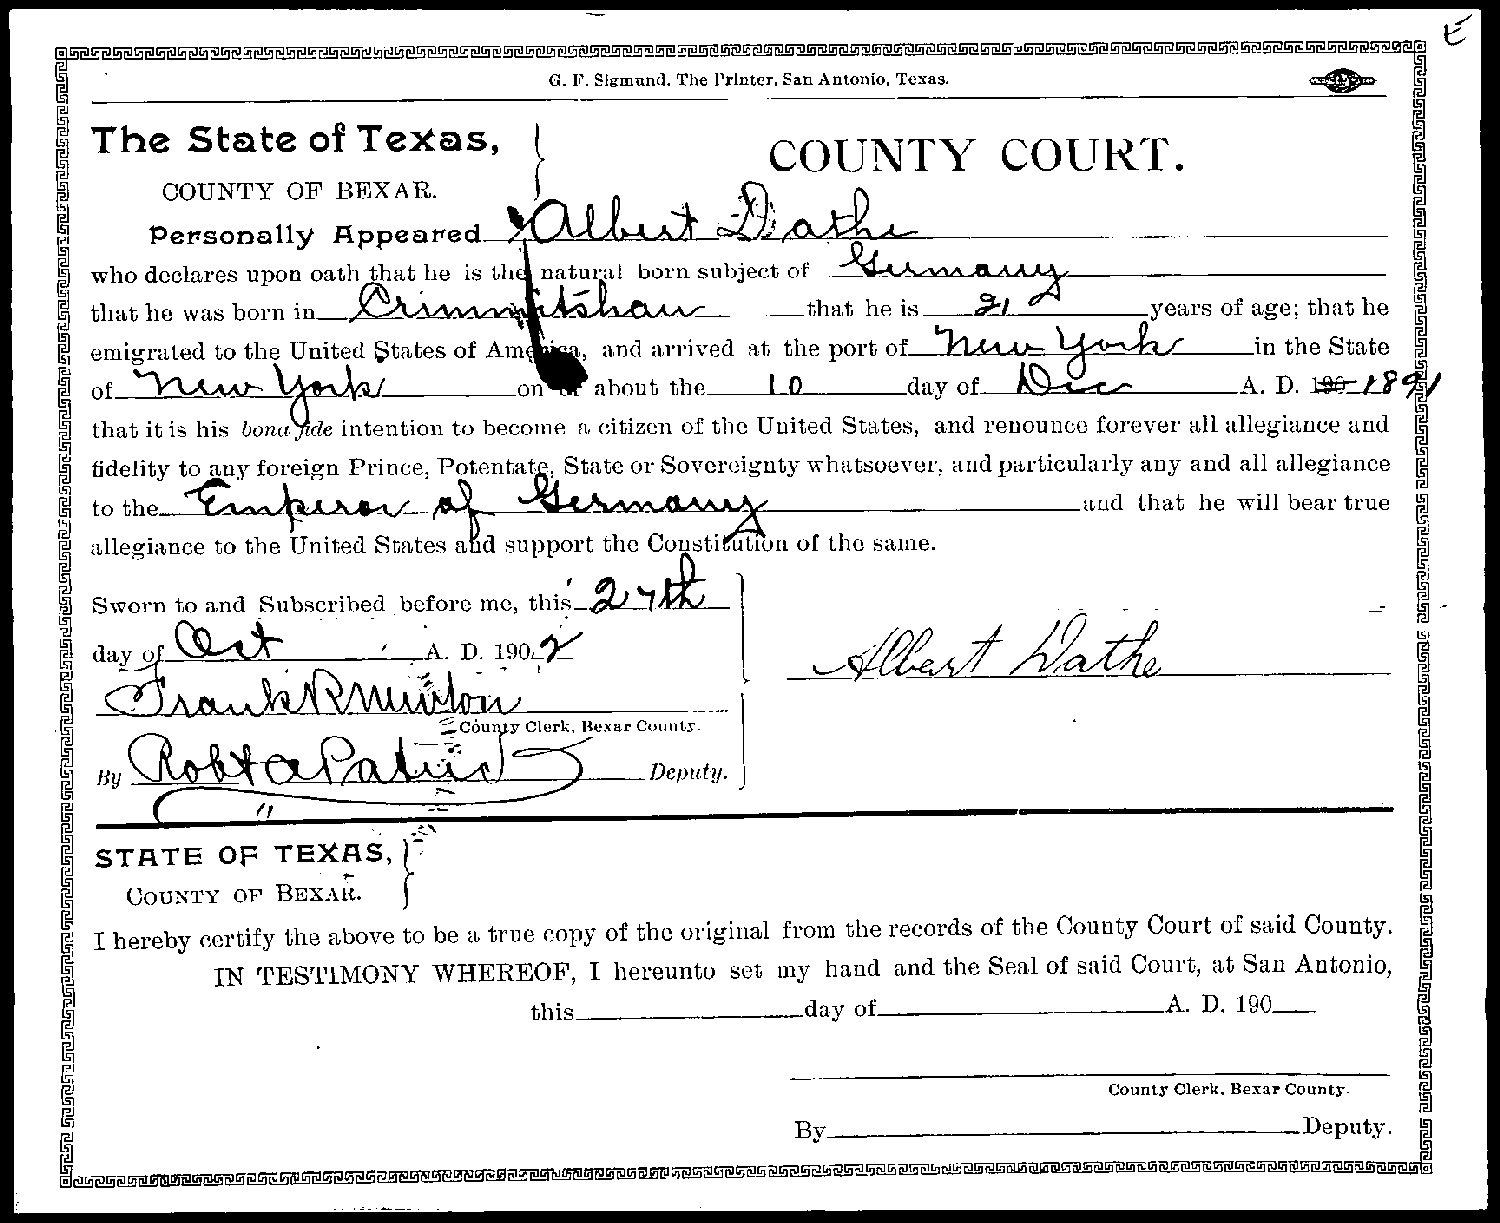 E
G. F. Sigmund, The Printer, San Antonio, Texas.
The State of Texas,
COUNTY OF BEXAR.
COUNTY COURT.
Personally Appeared Albert Dathe
who declares upon oath that he is the natural born subject of Germany
that he was born in Crimmitshau that he is 21 years of age; that he
emigrated to the United States of America, and arrived at the port of New York in the State
of New York on or about the 10 day of Dec A. D. 190 1891
that it is his bona fide intention to become a citizen of the United States, and renounce forever all allegiance and
fidelity to any foreign Prince, Potentate, State or Sovereignty whatsoever, and particularly any and all allegiance
to the Emperor of Germany and that he will bear true
allegiance to the United States and support the Constitution of the same.
Sworn to and Subscribed before me, this 27th
day of Oct A. D. 1902
Albert Dathe
Frank R Newton
County Clerk, Bexar County.
By Robt Deputy.
STATE OF TEXAS,
COUNTY OF BEXAR.
I hereby certify the above to be a true copy of the original from the records of the County Court of said County.
IN TESTIMONY WHEREOF, I hereunto set my hand and the Seal of said Court, at San Antonio,
this day of A. D. 190
County Clerk, Bexar County.
By Deputy.